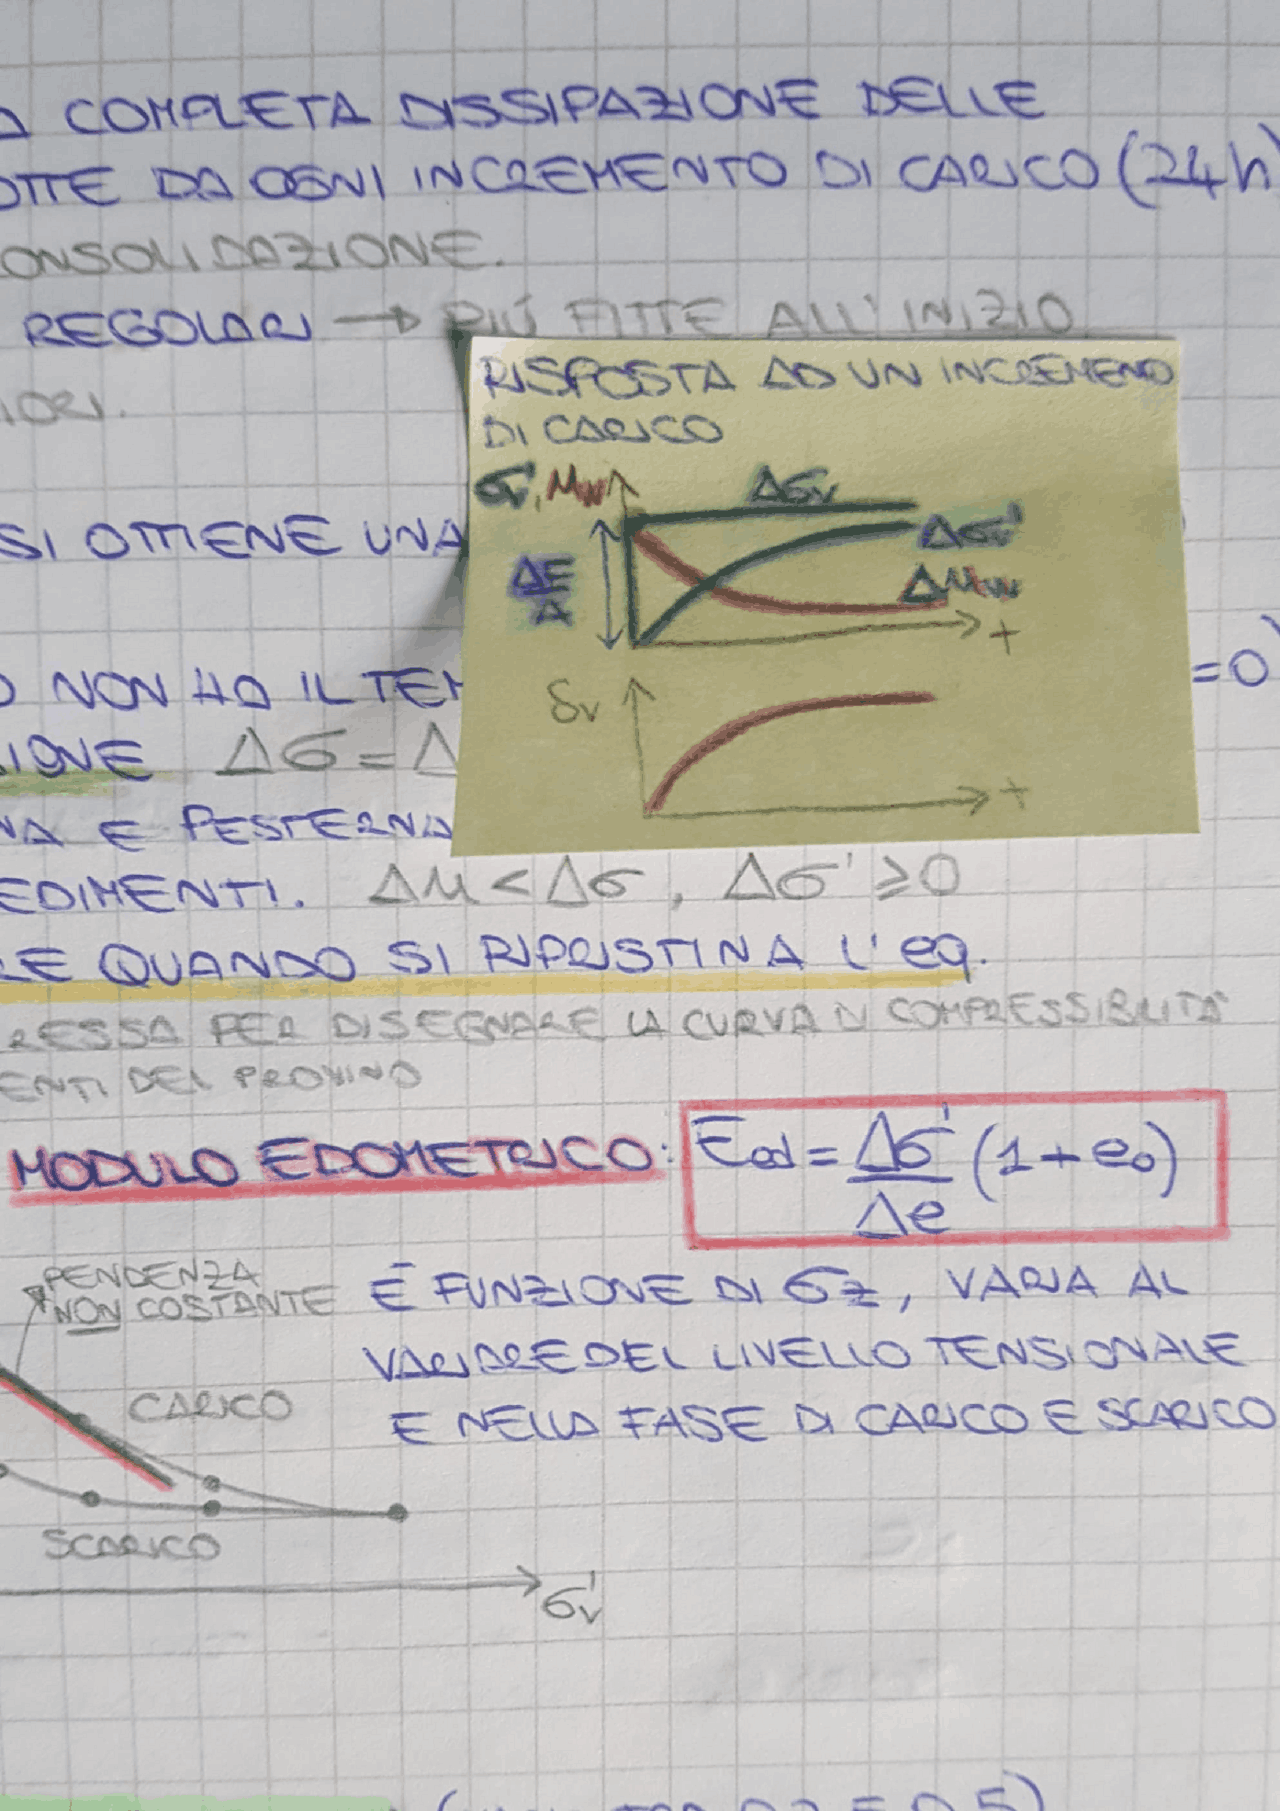 COMPLETA DISSIPAZIONE DELLE
OTTE DA OGNI INCREMENTO DI CARICO (24h)
ONSOLIDAZIONE.
REGOLARI → PIÚ FITTE ALL'INIZIO
IORI.
RISPOSTA AD UN INCREMENO
DI CARICO
σv', Mw
Δσv
SI OTTIENE UNA
Δσv'
ΔE/A
ΔMw
t
NON HO IL TEM
=0)
δv
IONE Δσ = Δ
t
NA E PESTERNA
EDIMENTI. Δu < Δσ, Δσ' ⩾ 0
LE QUANDO SI RIPRISTINA L'eq.
RESSA PER DISEGNARE LA CURVA DI COMPRESSIBILITA'
ENTI DEL PROVINO
MODULO EDOMETRICO: Eed = Δσ'/Δe (1+e₀)
PENDENZA
NON COSTANTE
É FUNZIONE DI σz, VARIA AL
VARIARE DEL LIVELLO TENSIONALE
CARICO
E NELLA FASE DI CARICO E SCARICO
SCARICO
σv'